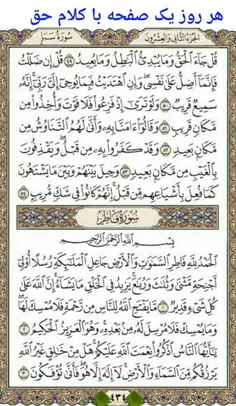 هر روز یک صفحه با کلام حق
الجزء الثاني والعشرون سورة سبإ
قُلْ جَاءَ الْحَقُّ وَمَا يُبْدِئُ الْبَاطِلُ وَمَا يُعِيدُ ﴿٤٩﴾ قُلْ إِن ضَلَلْتُ
فَإِنَّمَا أَضِلُّ عَلَىٰ نَفْسِي وَإِنِ اهْتَدَيْتُ فَبِمَا يُوحِي إِلَيَّ رَبِّي إِنَّهُ
سَمِيعٌ قَرِيبٌ ﴿٥٠﴾ وَلَوْ تَرَىٰ إِذْ فَزِعُوا فَلَا فَوْتَ وَأُخِذُوا مِن
مَّكَانٍ قَرِيبٍ ﴿٥١﴾ وَقَالُوا آمَنَّا بِهِ وَأَنَّىٰ لَهُمُ التَّنَاوُشُ مِن
مَّكَانٍ بَعِيدٍ ﴿٥٢﴾ وَقَدْ كَفَرُوا بِهِ مِن قَبْلُ وَيَقْذِفُونَ
بِالْغَيْبِ مِن مَّكَانٍ بَعِيدٍ ﴿٥٣﴾ وَحِيلَ بَيْنَهُمْ وَبَيْنَ مَا يَشْتَهُونَ
كَمَا فُعِلَ بِأَشْيَاعِهِم مِّن قَبْلُ إِنَّهُمْ كَانُوا فِي شَكٍّ مُّرِيبٍ ﴿٥٤﴾
سورة فاطر
بِسْمِ اللَّهِ الرَّحْمَٰنِ الرَّحِيمِ
الْحَمْدُ لِلَّهِ فَاطِرِ السَّمَاوَاتِ وَالْأَرْضِ جَاعِلِ الْمَلَائِكَةِ رُسُلًا أُولِي
أَجْنِحَةٍ مَّثْنَىٰ وَثُلَاثَ وَرُبَاعَ يَزِيدُ فِي الْخَلْقِ مَا يَشَاءُ إِنَّ اللَّهَ عَلَىٰ
كُلِّ شَيْءٍ قَدِيرٌ ﴿١﴾ مَّا يَفْتَحِ اللَّهُ لِلنَّاسِ مِن رَّحْمَةٍ فَلَا مُمْسِكَ لَهَا
وَمَا يُمْسِكْ فَلَا مُرْسِلَ لَهُ مِن بَعْدِهِ وَهُوَ الْعَزِيزُ الْحَكِيمُ ﴿٢﴾
يَا أَيُّهَا النَّاسُ اذْكُرُوا نِعْمَتَ اللَّهِ عَلَيْكُمْ هَلْ مِنْ خَالِقٍ غَيْرُ اللَّهِ
يَرْزُقُكُم مِّنَ السَّمَاءِ وَالْأَرْضِ لَا إِلَٰهَ إِلَّا هُوَ فَأَنَّىٰ تُؤْفَكُونَ ﴿٣﴾
٤٣٤